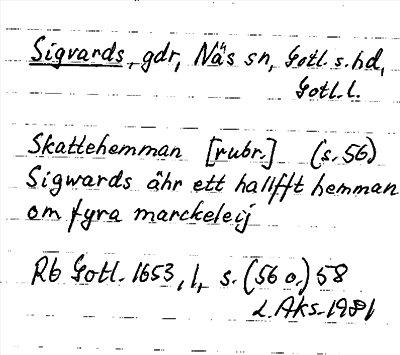 Sigvards, gdr, Näs sn, Gotl. s. hd,
Gotl. l.
Skattehemman [rubr.] (s. 56)
Sigwards ähr ett hallfft hemman
om fyra marckeleij
Rb Gotl. 1653, 1, s. (56 o.) 58
L. Aks. 1981